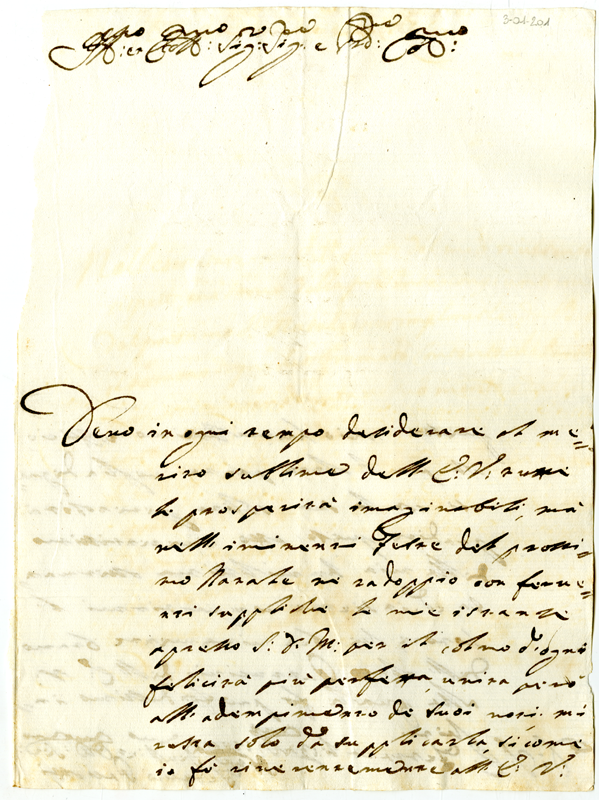 3-01-201
Ill:mo et Ecc:mo Sig:r Sig:r e Prõ: Col:mo
Devo in ogni tempo desiderare al me=
rito sublime dell' E: V: tutte
le prosperità imaginabili, mà
nell' iminenti Feste del prossi=
mo Natale ne radoppio con ferue=
nti suppliche le mie istanze
apresso S: D: M: per il colmo d'ogni
felicità più perfetta, unita però
all' adempimento de suoi voti. mi
resta solo da supplicarla, sicome
io fò riverentemente all' E: V: